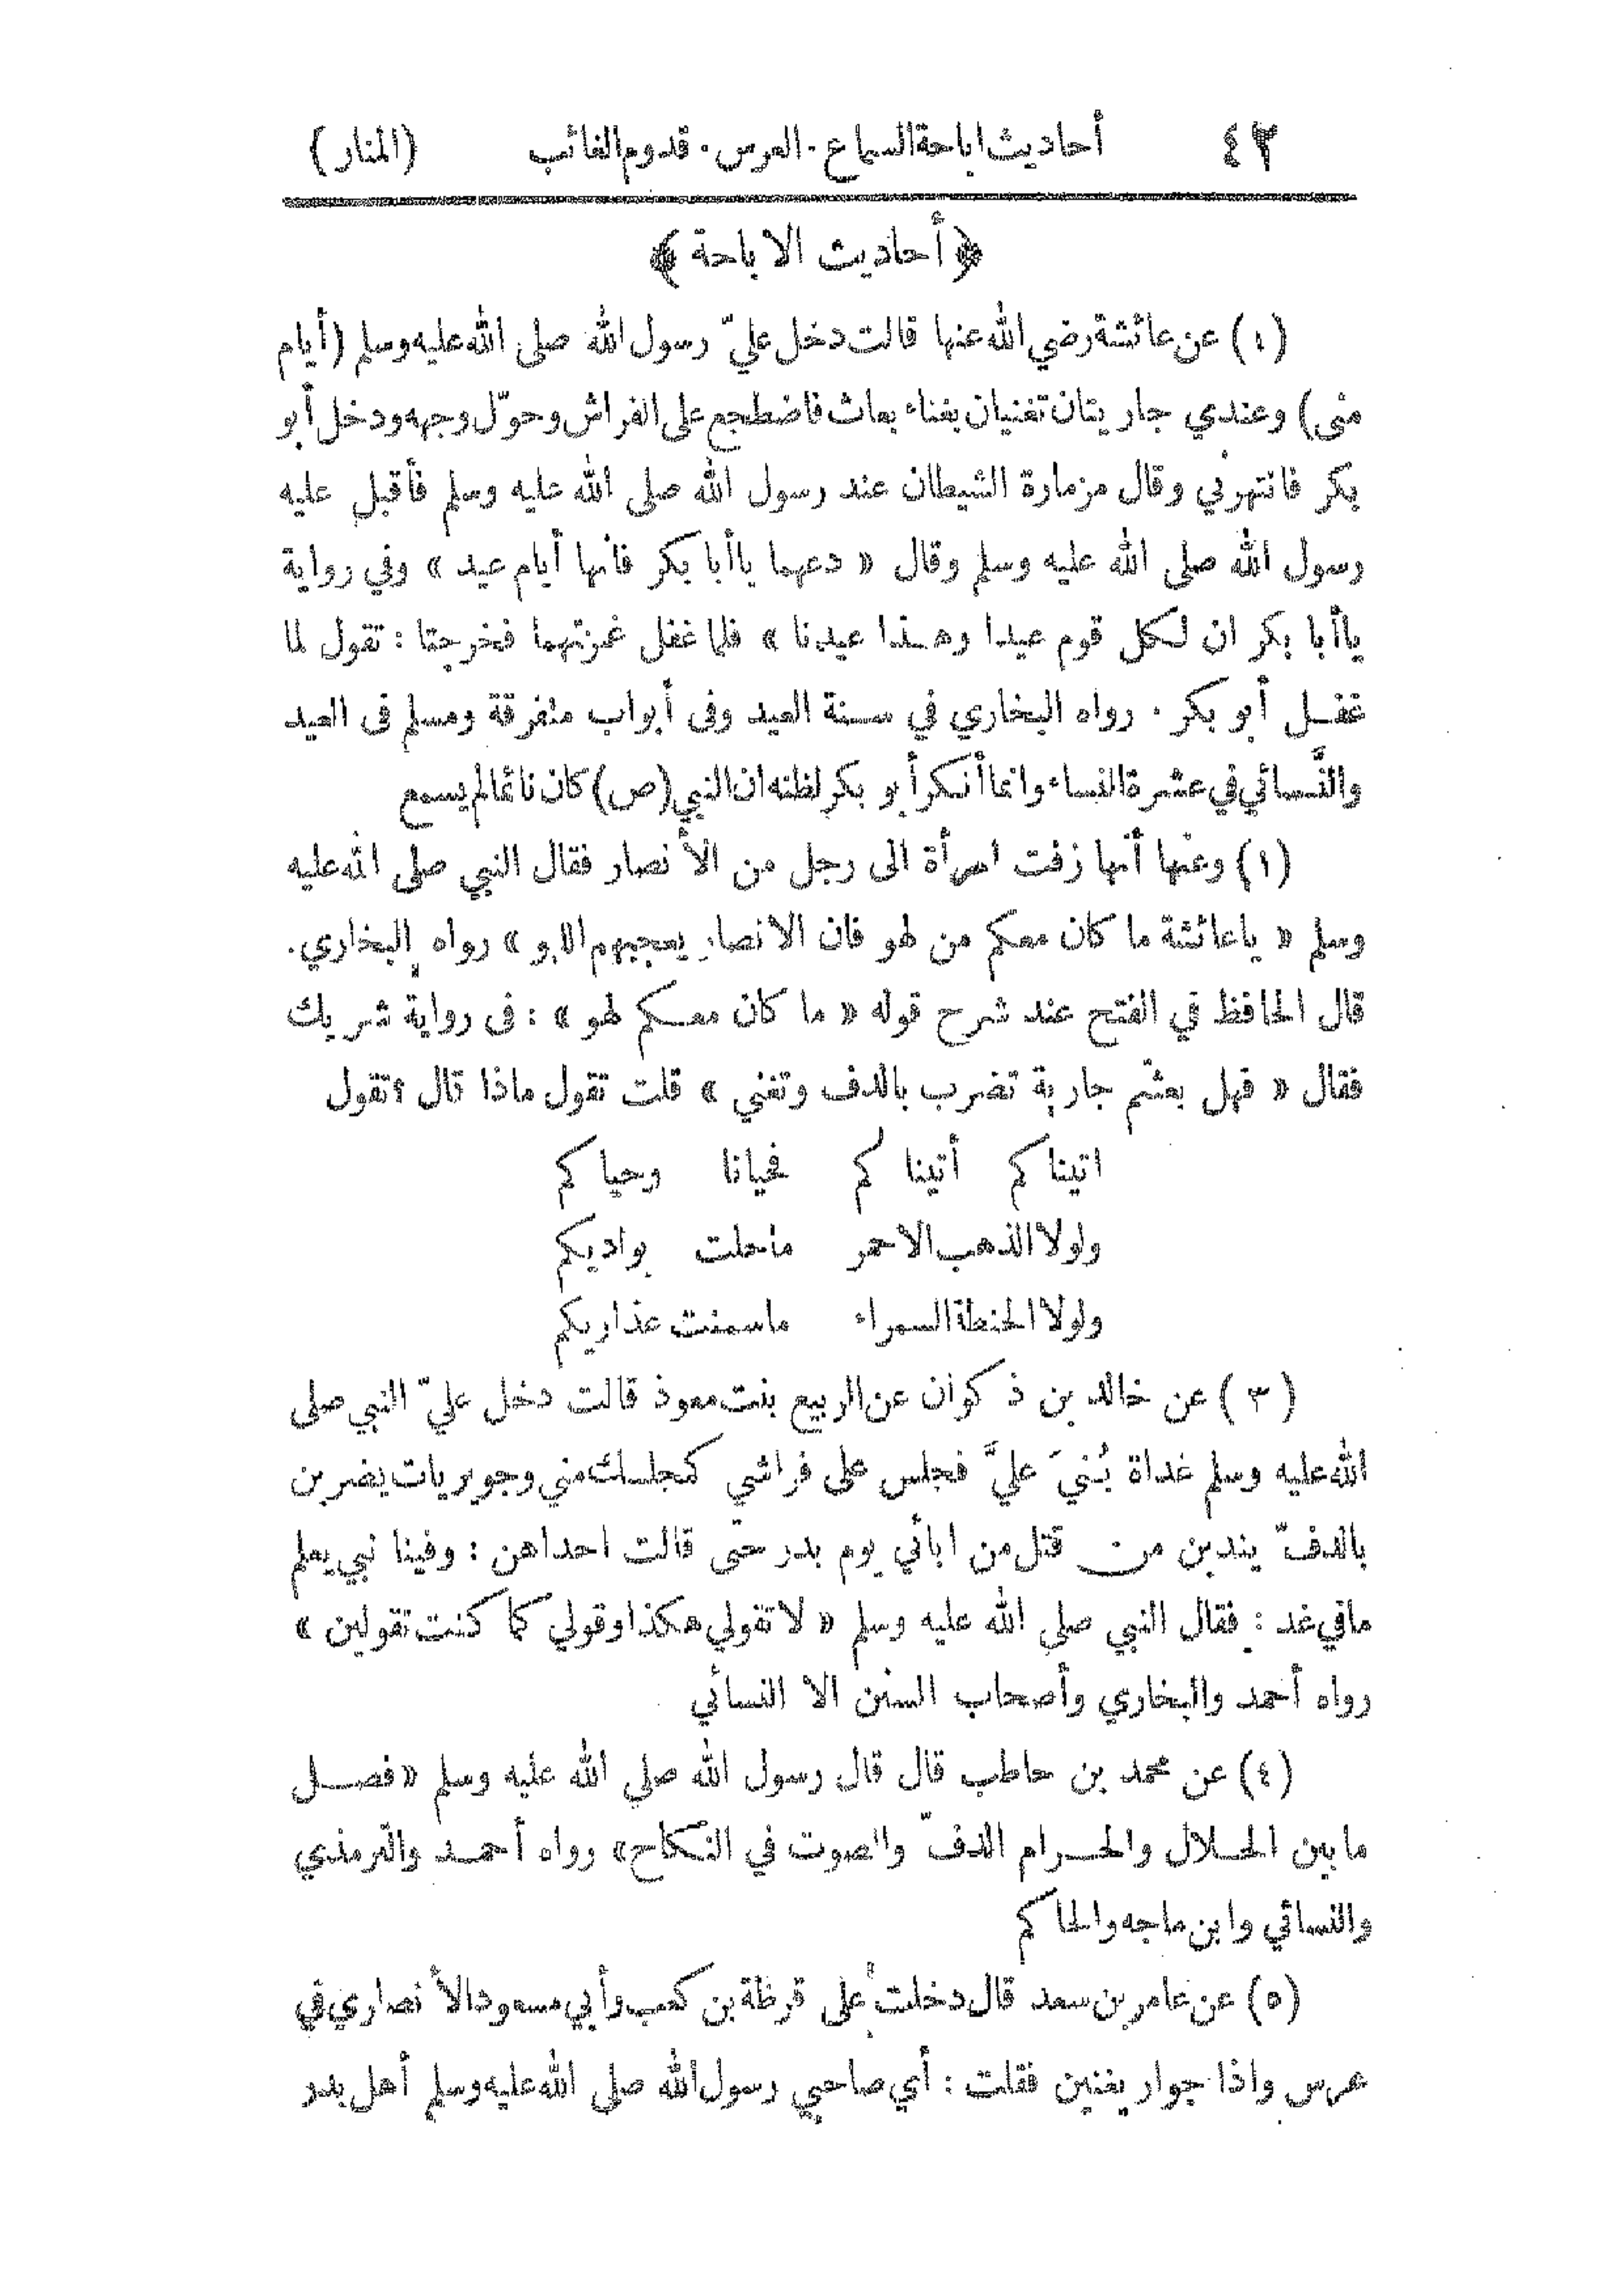 ٤٢ أحاديث اباحة السماع . العرس . قدوم الغائب (المنار)
﴿ أحاديث الاباحة ﴾
(١) عن عائشة رضي الله عنها قالت دخل عليّ رسول الله صلى الله عليه وسلم (أيام
منى) وعندي جاريتان تغنيان بغناء بعاث فاضطجع على الفراش وحوّل وجهه ودخل أبو
بكر فانتهرني وقال مزمارة الشيطان عند رسول الله صلى الله عليه وسلم فأقبل عليه
رسول الله صلى الله عليه وسلم وقال « دعهما ياأبا بكر فانها أيام عيد » وفي رواية
ياأبا بكر ان لكل قوم عيدا وهذا عيدنا » فلما غفل غمزتهما فخرجتا : تقول لما
غفل أبو بكر . رواه البخاري في سنة العيد وفى أبواب متفرقة ومسلم فى العيد
والنَّسائي في عشرة النساء وانما أنكر أبو بكر لظنه ان النبي (ص) كان نائما لم يسمع
(١) وعنها أنها زفت امرأة الى رجل من الأنصار فقال النبي صلى الله عليه
وسلم « ياعائشة ما كان معكم من لهو فان الانصار يعجبهم اللهو » رواه البخاري.
قال الحافظ في الفتح عند شرح قوله « ما كان معكم لهو » : فى رواية شريك
فقال « فهل بعثتم جارية تضرب بالدف وتغني » قلت تقول ماذا قال ؟ تقول
اتيناكم أتيناكم فحيانا وحياكم
ولولا الذهب الاحمر ماحلت بواديكم
ولولا الحنطة السمراء ماسمنت عذاريكم
(٣) عن خالد بن ذكوان عن الربيع بنت معوذ قالت دخل عليّ النبي صلى
الله عليه وسلم غداة بُنيَ عليَّ فجلس على فراشي كمجلسك مني وجويريات يضربن
بالدفّ يندبن من قتل من ابائي يوم بدر حتى قالت احداهن : وفينا نبي يعلم
مافي غد : فقال النبي صلى الله عليه وسلم « لا تقولي هكذا وقولي كما كنت تقولين »
رواه أحمد والبخاري وأصحاب السنن الا النسائي
(٤) عن محمد بن حاطب قال قال رسول الله صلى الله عليه وسلم « فصل
ما بين الحلال والحرام الدفّ والصوت في النكاح» رواه أحمد والترمذي
والنسائي وابن ماجه والحاكم
(٥) عن عامر بن سعد قال دخلت على قرظة بن كعب وأبي مسعود الأنصاري في
عرس واذا جوار يغنين فقلت : أي صاحبي رسول الله صلى الله عليه وسلم أهل بدر